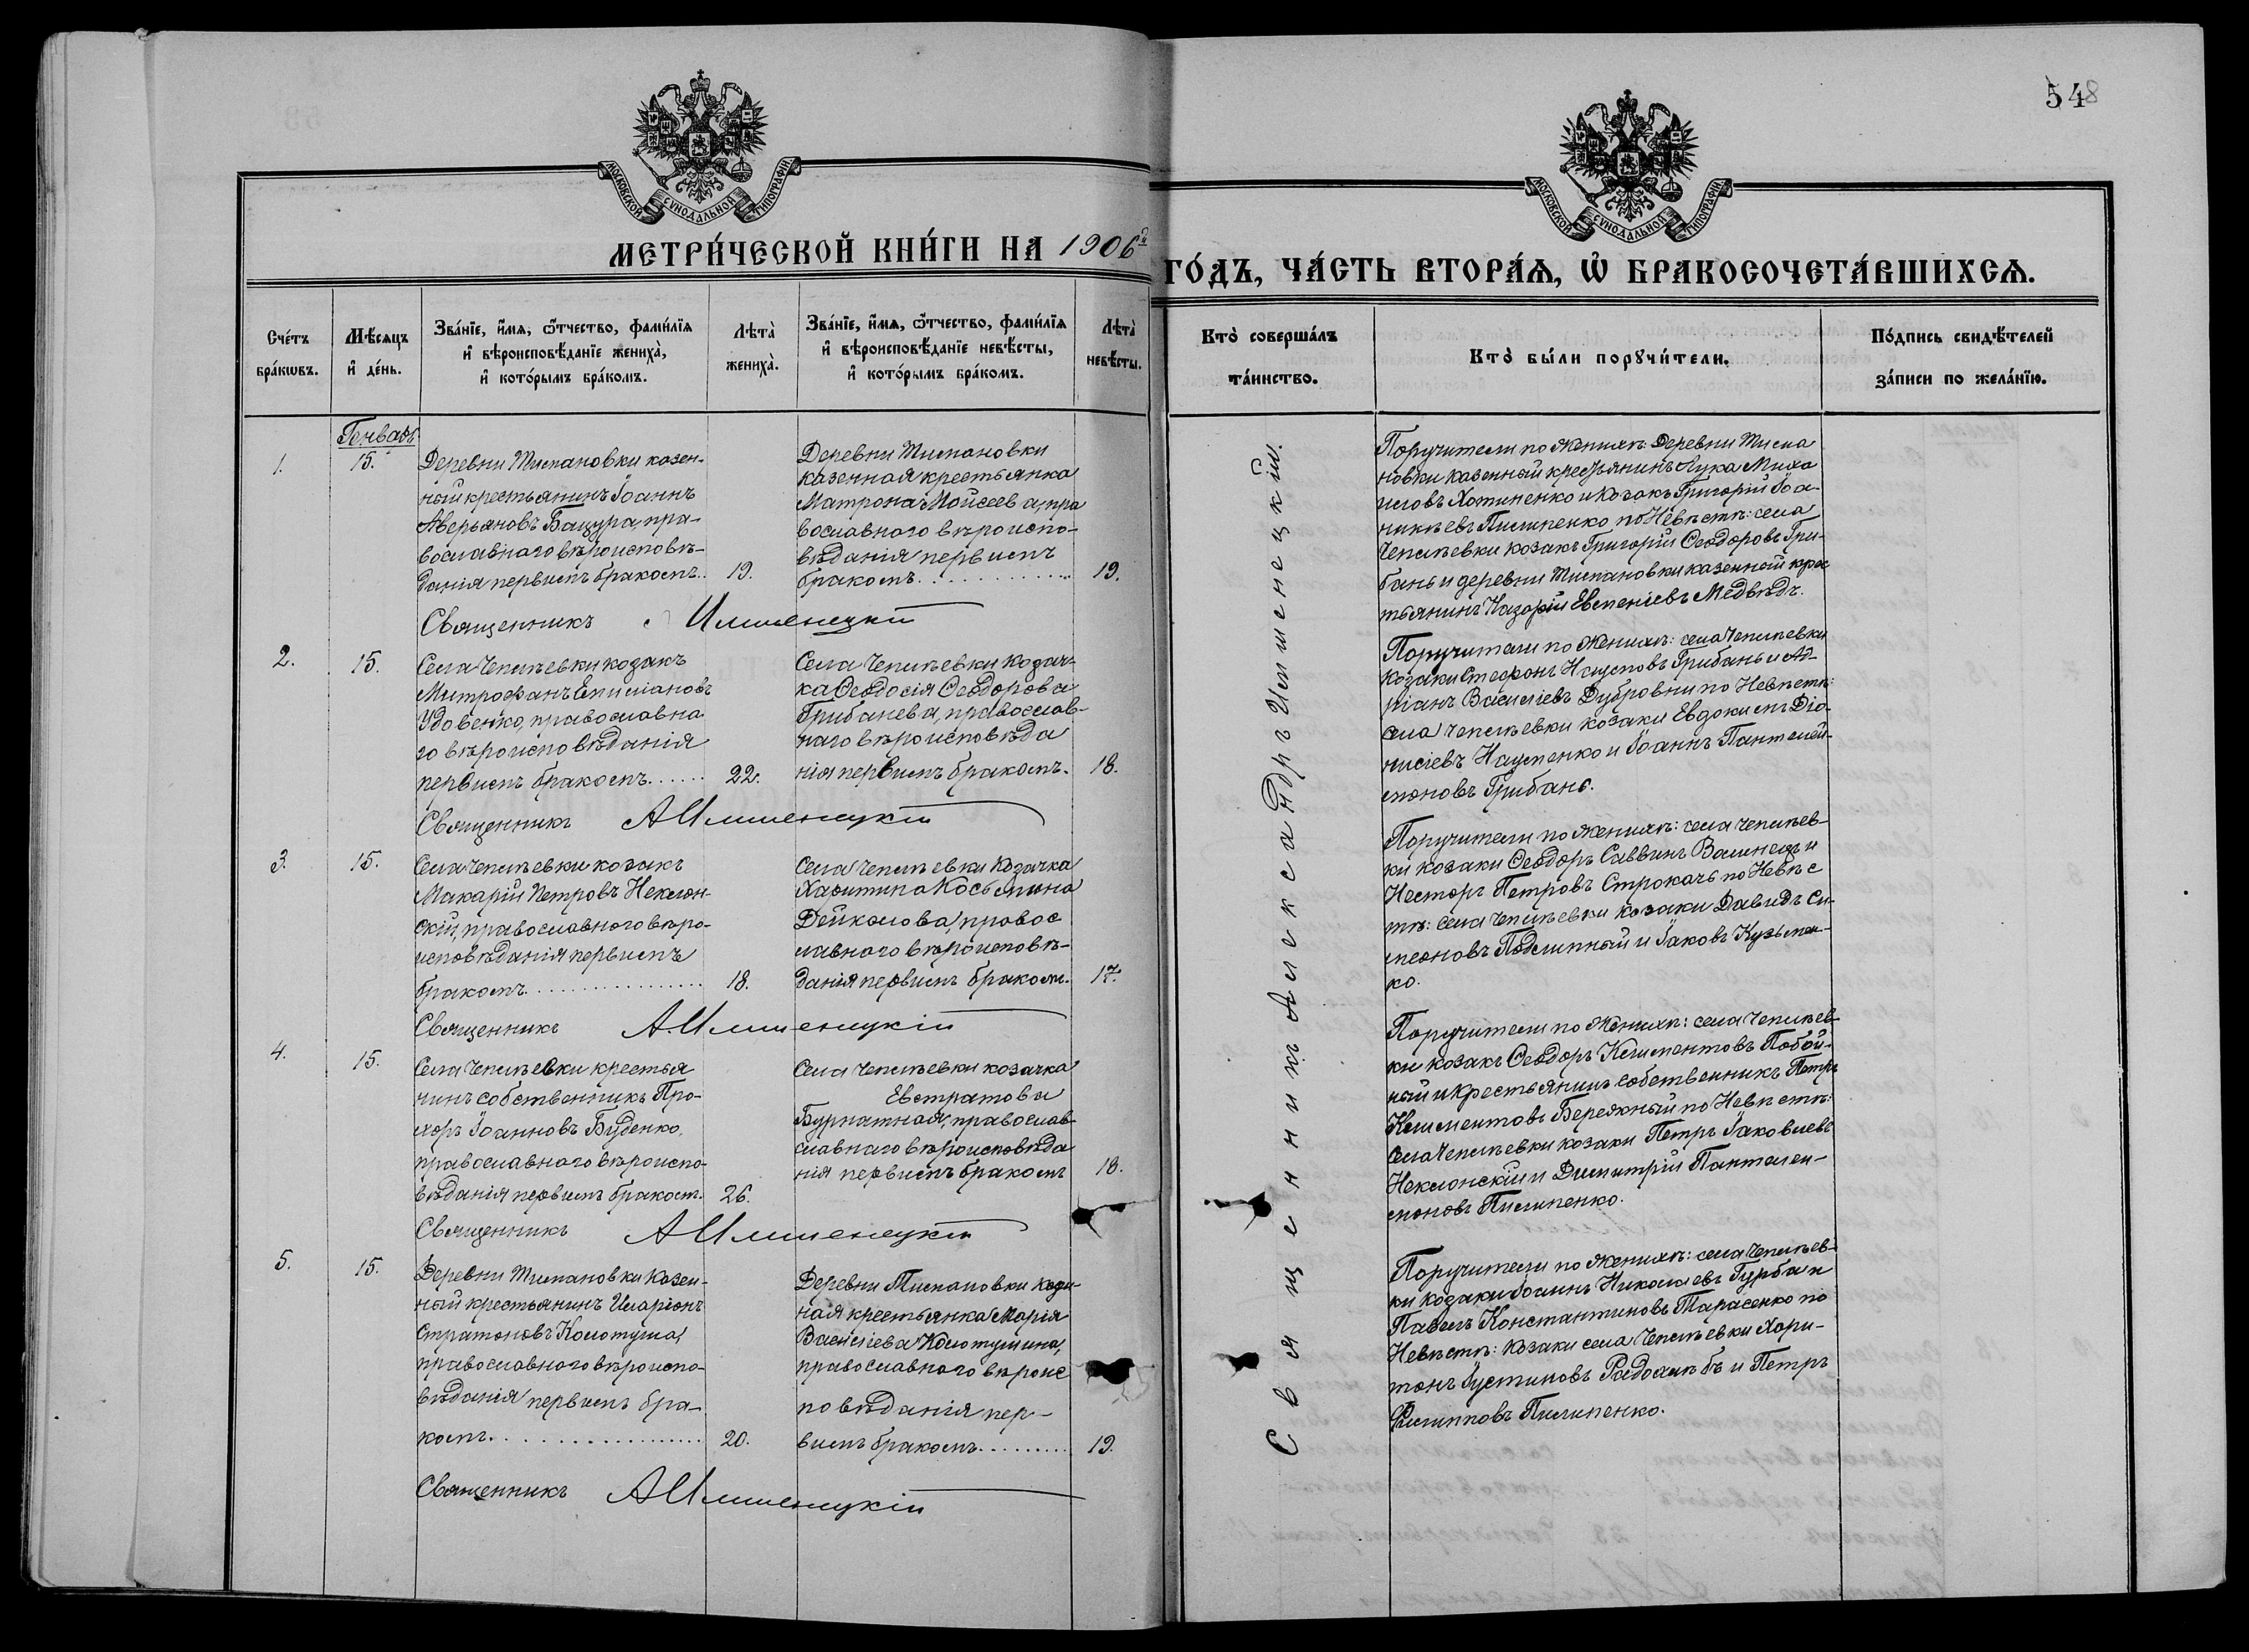 548
МОСКОВСКОЙ СѴНОДАЛЬНОЙ ТИПОГРАФІИ
МОСКОВСКОЙ СѴНОДАЛЬНОЙ ТИПОГРАФІИ
МЕТРИ́ЧЕСКОЙ КНИ́ГИ НА 1906й ГО́ДЪ, ЧА́СТЬ ВТОРА́Ѧ, Ѡ҆ БРАКОСОЧЕТА́ВШИХСѦ.
Сче́тъ бра́кѡвъ.
Мѣ́сѧцъ и҆ де́нь.
Зва́нїе, и҆́мѧ, ѻ҆́тчество, фами́лїѧ и҆ вѣроисповѣ́данїе жениха̀, и҆ кото́рымъ бра́комъ.
Лѣта̀ жениха̀.
Зва́нїе, и҆́мѧ, ѻ҆́тчество, фами́лїѧ и҆ вѣроисповѣ́данїе невѣ́сты, и҆ кото́рымъ бра́комъ.
Лѣта̀ невѣ́сты.
Кто̀ соверша́лъ та́инство.
Кто̀ бы́ли порꙋчи́тели.
По́дпись свидѣ́телей за́писи по жела́нїю.
Генварь
1.
15.
Деревни Тимановки казен-
ный крестьянинъ Іоаннъ
Аверьяновъ Бацура, пра-
вославнаго вѣроисповѣ-
данія первымъ бракомъ..
19.
Деревни Тимановки
казенная крестьянка
Матрона Моисеева, пра
вославного вѣроиспо-
вѣданія первымъ
бракомъ
19.
Священникъ Имшенецкій
Поручители по Женихѣ: Деревни Тима
новки казенный крестьянинъ Лука Миха
иловъ Хотиненко и козакъ Григорій Іоа-
никіевъ Пилипенко по Невѣстѣ: села
Чепилѣевки козакъ Григорій Ѳеодоровъ Гри-
бань и деревни Тимановки казенный крес
тьянинъ Назарій Евменіевъ Медвѣдь.
2.
15.
Села Чепилѣевки козакъ
Митрофанъ Емиліановъ
Удовенко, православна
го вѣроисповѣданія
первымъ бракомъ
22.
Села Чепилѣевки козач-
ка Ѳеодосія Ѳеодорова
Грибанева, православ-
наго вѣроисповѣда
нія первымъ бракомъ.
18.
Священникъ А Имшенецкій
Поручители по Женихѣ: села Чепилѣевки
козаки Стефанъ Наумовъ Грибань и Ад-
ріанъ Василіевъ Дубровни по Невѣстѣ:
села Чепилѣевки козаки Евдокимъ Діо-
нисіевъ Науменко и Іоаннъ Пантелей-
моновъ Грибань.
3.
15.
Села Чепилѣевки козакъ
Макарій Петровъ Неклон-
скій, православнаго вѣро-
исповѣданія первымъ
бракомъ
18.
Села Чепилѣевки козачка
Харитина Косьмина
Дейкалова, правос
лавного вѣроисповѣ-
данія первымъ бракомъ.
17.
Священникъ А. Имшенецкій
Поручители по Женихѣ: села Чепилѣев-
ки козаки Ѳеодоръ Саввинъ Валинецъ и
Несторъ Петровъ Строкачь по Невѣс
тѣ: села Чепилѣевки козаки Давидъ Си-
меоновъ Подлипный и Іаковъ Кузьмен-
ко.
4.
15.
Села Чепилѣевки крестья
нинъ собственникъ Про-
хоръ Іоанновъ Буденко,
православнаго вѣроиспо-
вѣданія первымъ бракомъ.
26.
Села Чепилѣевки козачка
Евстратова
Бурпатная, православ-
славнаго вѣроисповѣда
нія первымъ бракомъ
18.
Священникъ А Имшенецкій
Поручители по Женихѣ: села Чепилѣев-
ки козакъ Ѳеодоръ Климентовъ Побой-
ный и крестьянинъ собственникъ Петръ
Климентовъ Бережный по Невѣстѣ:
села Чепилѣевки козаки Петръ Іаковлевъ
Неклонскій и Димитрій Пантелеи-
моновъ Пилипенко.
5.
15.
Деревни Тимановки казен-
ный крестьянинъ Иларіонъ
Стратоновъ Колотуша,
православнаго вѣроиспо-
вѣданія первымъ бра-
комъ
20.
Деревни Тимановки казен-
ная крестьянка Марія
Василіева Колотушина,
православнаго вѣроис
повѣданія пер-
вымъ бракомъ
19.
Священникъ А Имшенецкій
Поручители по Женихѣ: села Чепилѣев-
ки козаки Іоаннъ Николаевъ Гурба и
Павелъ Константиновъ Тарасенко по
Невѣстѣ: козаки села Чепилѣевки Хари-
тонъ Іустиновъ и Петръ
Филипповъ Пилипенко.
Священникъ Александръ Имшенецкій.